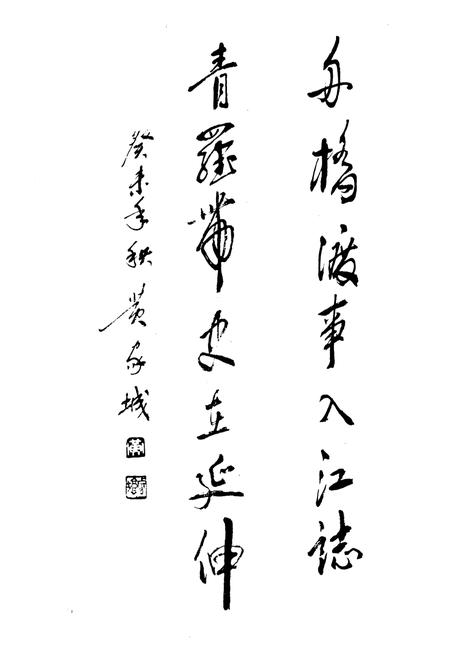 舟橋渡事入江誌
青羅帶史在延伸
癸未年秋黄家城